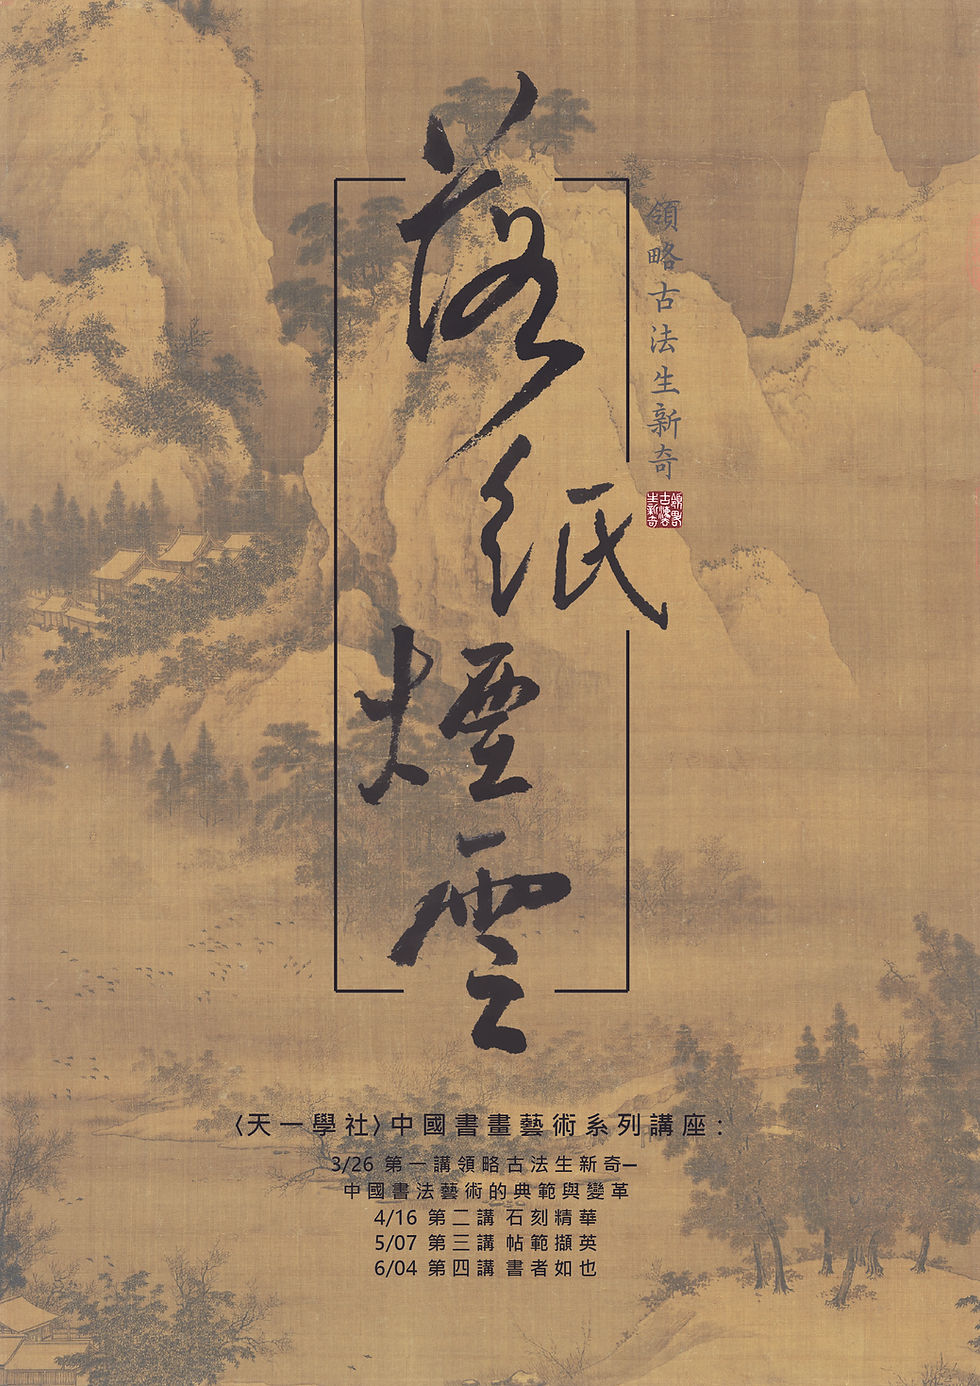 落紙煙雲
領略古法生新奇
領略古法生新奇
〈天一學社〉中國書畫藝術系列講座：
3/26 第一講領略古法生新奇─
中國書法藝術的典範與變革
4/16 第二講 石刻精華
5/07 第三講 帖範擷英
6/04 第四講 書者如也